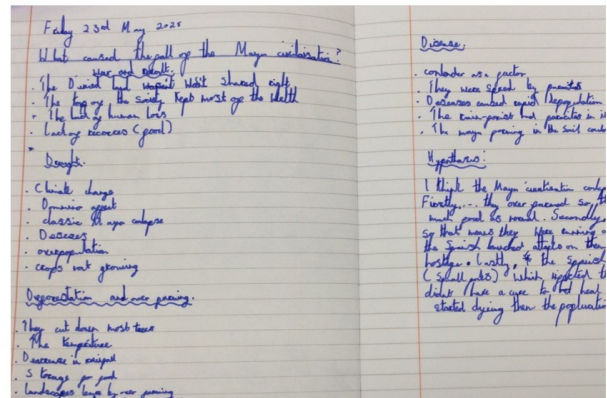 Friday 23rd May 2025
What caused the fall of the Mayan civilisation?
War and revolt:
. The Divied land wasn't shared right
. The top of the society kept most of the wealth
. The lack of human loss
. Lack of recorces (food)
Drought:
. Climate change
. Dominio effect
. classic Maya collapse
. Deseases
. overpopulation
. crops not growing
Deforestation and over farming.
. They cut down most trees
. The tempertree
. Decrease in rainfall
. Storage for food
. Landscapes by over farming
Disease:
. contender as a factor
. They were spread by parasites
. Deseases caused rapid depopulation
. The had parasites in
. The maya farming in the soil
Hypothesis:
I think the Mayan
Firstly,... they over farmed so
much food as usual. Secondly
so that means they were running
the Spanish launched attacks on
hostage. Lastly, the Spanish
(small pots) which
didn't have a cure to heal
started dyeing then the population